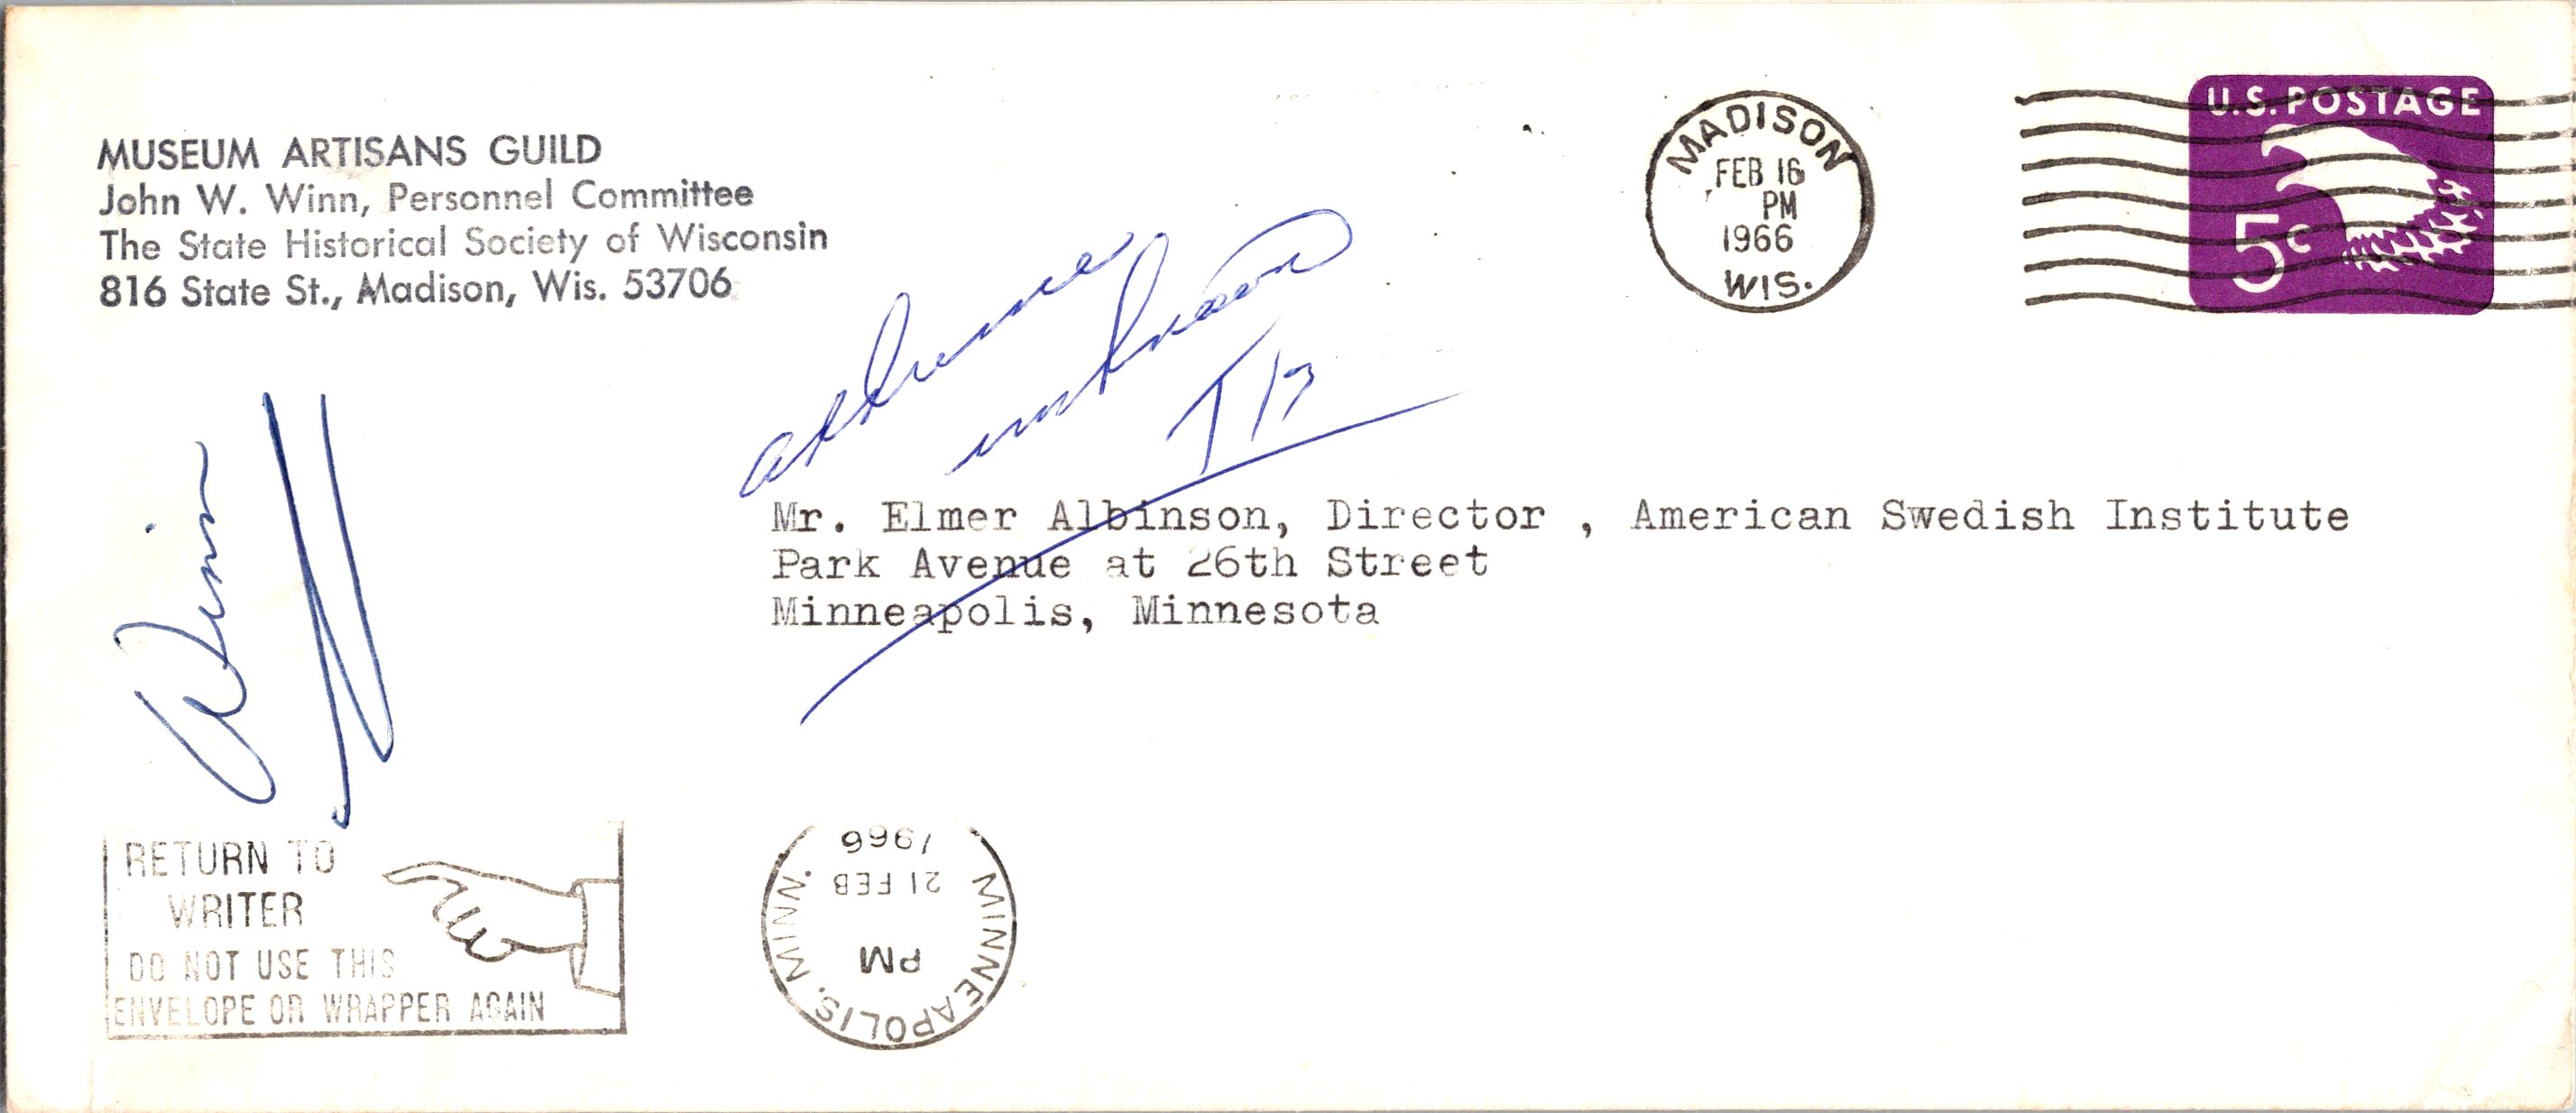 MUSEUM ARTISANS GUILD
John W. Winn, Personnel Committee
The State Historical Society of Wisconsin
816 State St., Madison, Wis. 53706
MADISON
FEB 16
PM
1966
WIS.
U.S. POSTAGE
5c
unknown
Mr. Elmer Albinson, Director , American Swedish Institute
Park Avenue at 26th Street
Minneapolis, Minnesota
Winn
RETURN TO
WRITER
DO NOT USE THIS
ENVELOPE OR WRAPPER AGAIN
MINNEAPOLIS, MINN.
PM
21 FEB
1966